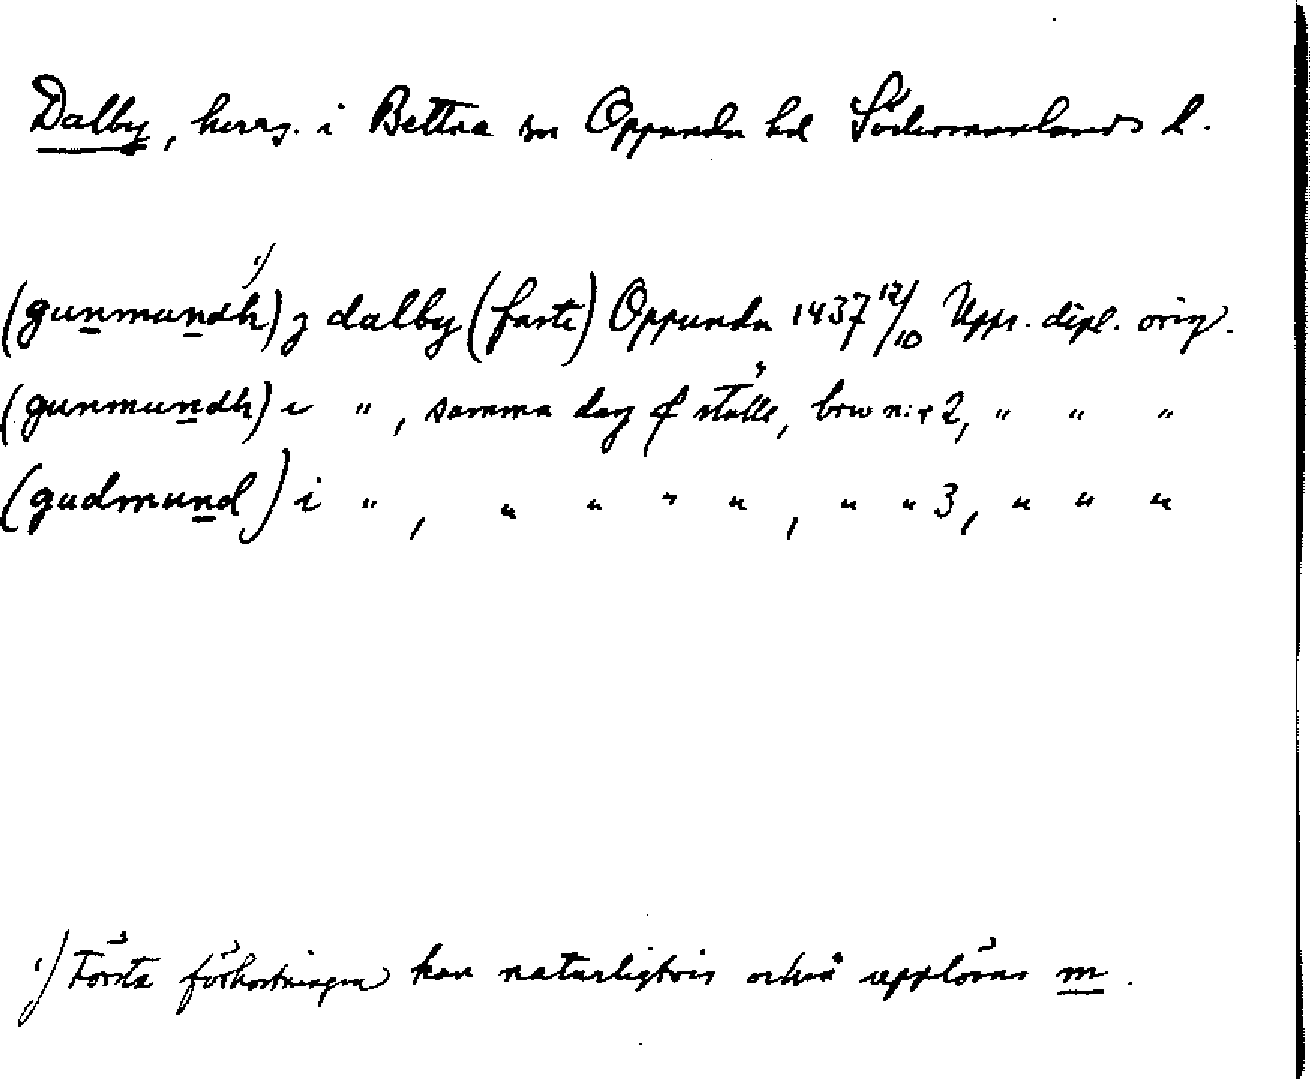 Dalby, herrg. i Bettna sn Oppunda hd Södermanlands l.
(gunmundh)¹⁾ j dalby (faste) Oppunda 1437 12/10 Upps. dipl. orig.
(gunmundh) i " , samma dag & ställe, brev n:r 2, " " "
(gudmund) i " , " " " " , " " 3, " " "
¹⁾ Första förkortningen kan naturligtvis också upplösas m.